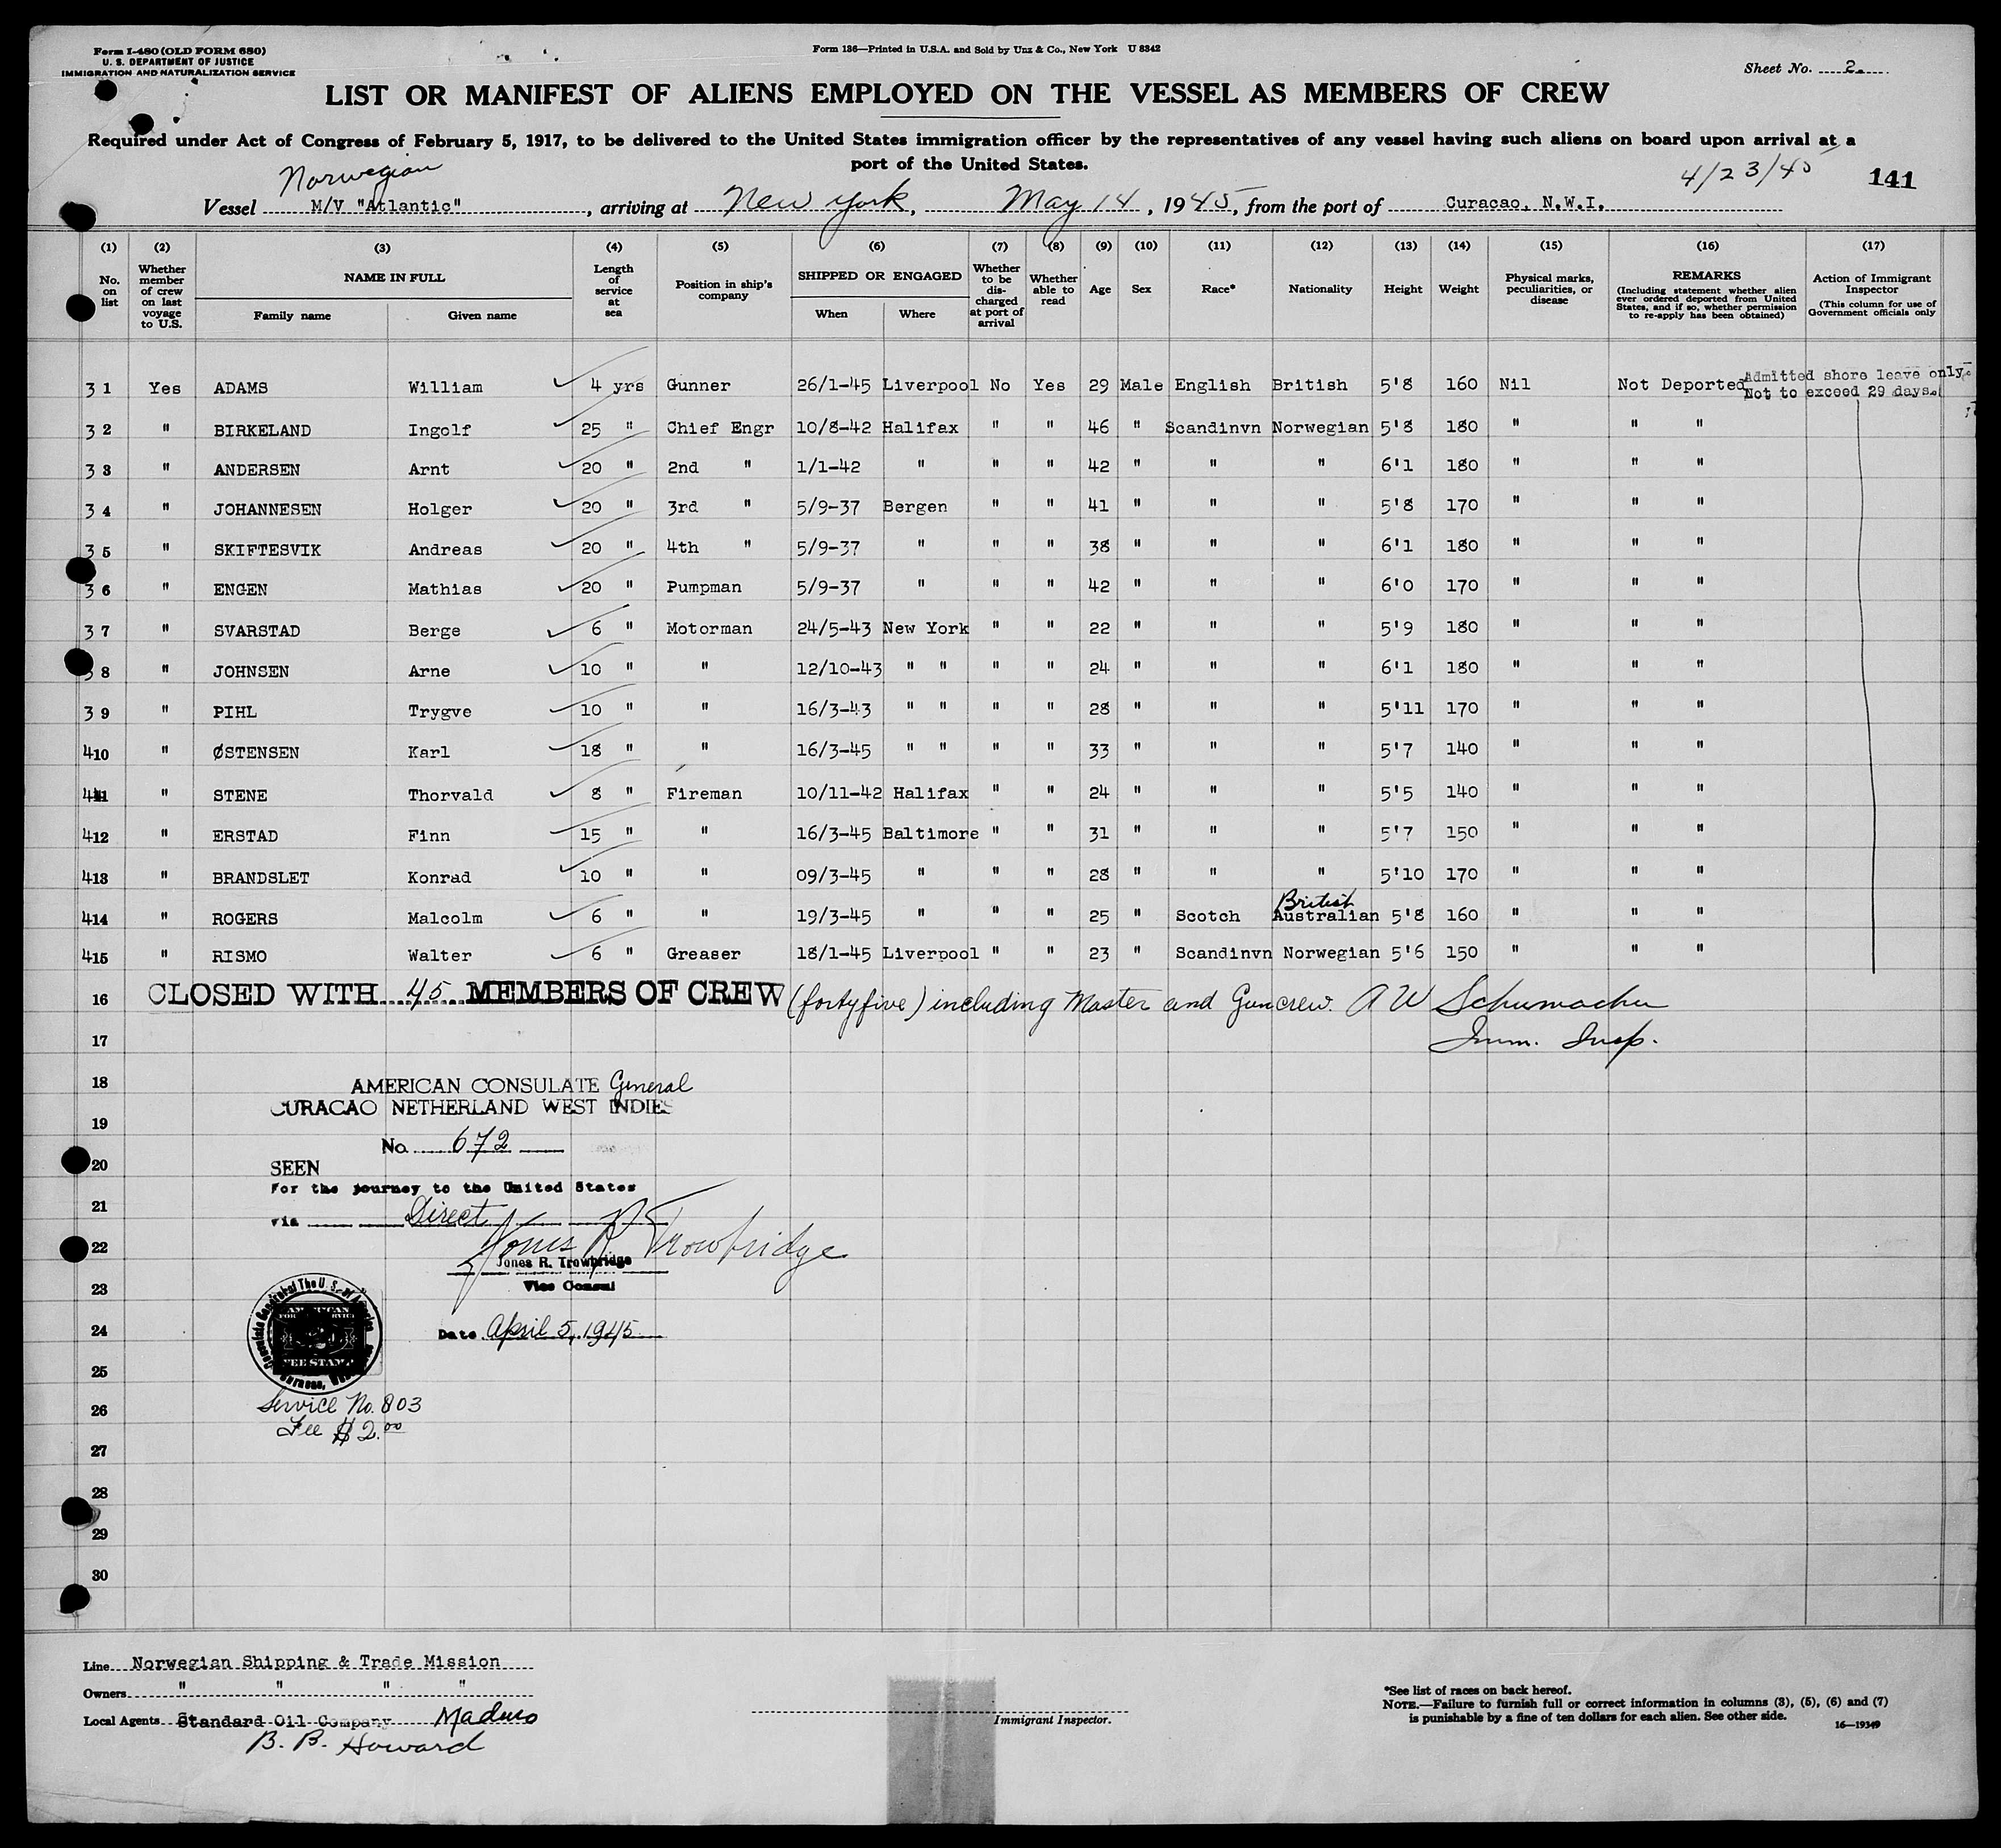 Form I-480 (OLD FORM 680)
U. S. DEPARTMENT OF JUSTICE
IMMIGRATION AND NATURALIZATION SERVICE
Form 136—Printed in U.S.A. and Sold by Unz & Co., New York U 8342
Sheet No. 2.
LIST OR MANIFEST OF ALIENS EMPLOYED ON THE VESSEL AS MEMBERS OF CREW
Required under Act of Congress of February 5, 1917, to be delivered to the United States immigration officer by the representatives of any vessel having such aliens on board upon arrival at a
port of the United States.
Norwegian
4/23/45 141
Vessel M/V "Atlantic", arriving at New York, May 14, 1945, from the port of Curacao, N.W.I.
(1) (2) (3) (4) (5) (6) (7) (8) (9) (10) (11) (12) (13) (14) (15) (16) (17)
No. on list
Whether member of crew on last voyage to U.S.
NAME IN FULL
Family name Given name
Length of service at sea
Position in ship's company
SHIPPED OR ENGAGED
When Where
Whether to be discharged at port of arrival
Whether able to read
Age
Sex
Race*
Nationality
Height
Weight
Physical marks, peculiarities, or disease
REMARKS
(Including statement whether alien ever ordered deported from United States, and if so, whether permission to re-apply has been obtained)
Action of Immigrant Inspector
(This column for use of Government officials only
31 Yes ADAMS William 4 yrs Gunner 26/1-45 Liverpool No Yes 29 Male English British 5'8 160 Nil Not Deported Admitted shore leave only.
Not to exceed 29 days.
32 " BIRKELAND Ingolf 25 " Chief Engr 10/8-42 Halifax " " 46 " Scandinvn Norwegian 5'8 180 " " "
33 " ANDERSEN Arnt 20 " 2nd " 1/1-42 " " " 42 " " " 6'1 180 " " "
34 " JOHANNESEN Holger 20 " 3rd " 5/9-37 Bergen " " 41 " " " 5'8 170 " " "
35 " SKIFTESVIK Andreas 20 " 4th " 5/9-37 " " " 38 " " " 6'1 180 " " "
36 " ENGEN Mathias 20 " Pumpman 5/9-37 " " " 42 " " " 6'0 170 " " "
37 " SVARSTAD Berge 6 " Motorman 24/5-43 New York " " 22 " " " 5'9 180 " " "
38 " JOHNSEN Arne 10 " " 12/10-43 " " " " 24 " " " 6'1 180 " " "
39 " PIHL Trygve 10 " " 16/3-43 " " " " 28 " " " 5'11 170 " " "
410 " ØSTENSEN Karl 18 " " 16/3-45 " " " " 33 " " " 5'7 140 " " "
411 " STENE Thorvald 8 " Fireman 10/11-42 Halifax " " 24 " " " 5'5 140 " " "
412 " ERSTAD Finn 15 " " 16/3-45 Baltimore " " 31 " " " 5'7 150 " " "
413 " BRANDSLET Konrad 10 " " 09/3-45 " " " 28 " " " 5'10 170 " " "
British
414 " ROGERS Malcolm 6 " " 19/3-45 " " " 25 " Scotch Australian 5'8 160 " " "
415 " RISMO Walter 6 " Greaser 18/1-45 Liverpool " " 23 " Scandinvn Norwegian 5'6 150 " " "
16 CLOSED WITH 45 MEMBERS OF CREW (fortyfive) including Master and Guncrew. A W Schumacher
17 Imm. Insp.
18 AMERICAN CONSULATE General
CURACAO NETHERLAND WEST INDIES
19
No. 672
20 SEEN
For the journey to the United States
21 via Direct
Jones R Trowbridge
22 Jones R. Trowbridge
23 Vice Consul
24 Date April 5, 1945
FEE STAMP
25
26 Service No. 803
Fee $2.00
27
28
29
30
Line Norwegian Shipping & Trade Mission
Owners " " " "
Local Agents Standard Oil Company Maduro
B. B. Howard
Immigrant Inspector.
*See list of races on back hereof.
NOTE.—Failure to furnish full or correct information in columns (3), (5), (6) and (7)
is punishable by a fine of ten dollars for each alien. See other side.
16—19349